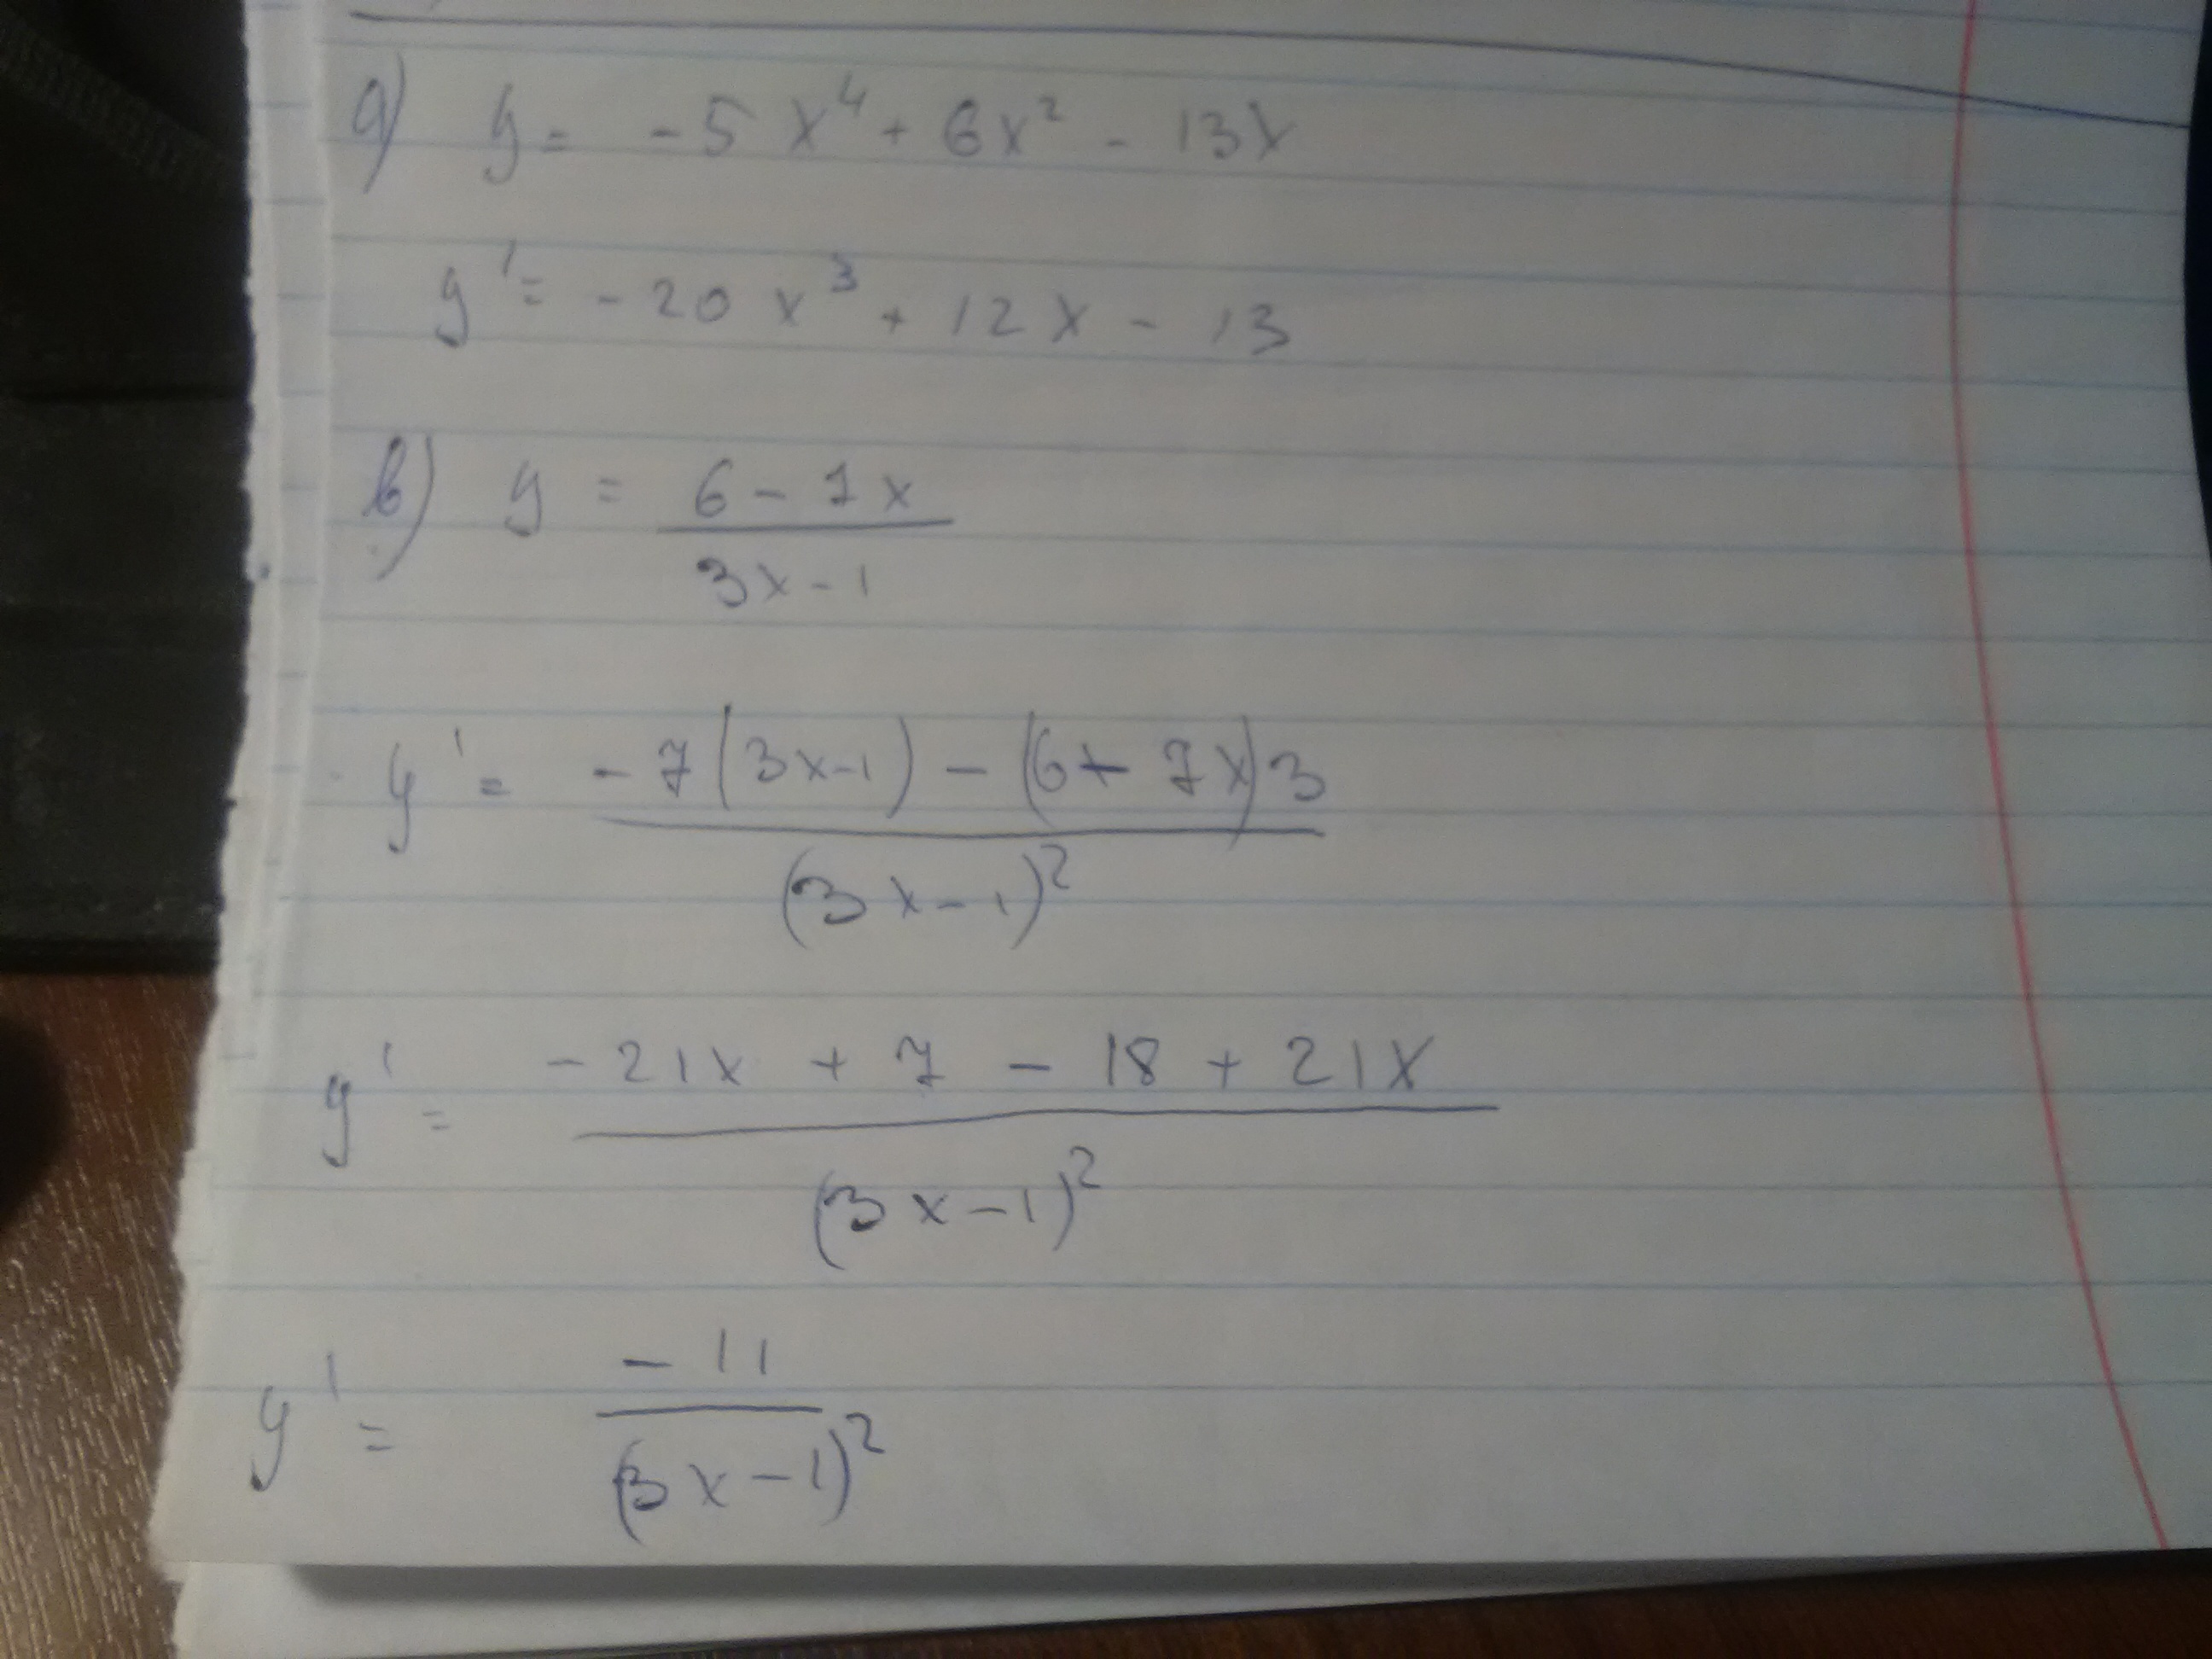 а) y = -5x⁴ + 6x² - 13x
y' = -20x³ + 12x - 13
в) y = (6 - 7x) / (3x - 1)
y' = (-7(3x-1) - (6 - 7x)3) / (3x - 1)²
y' = (-21x + 7 - 18 + 21x) / (3x - 1)²
y' = -11 / (3x - 1)²